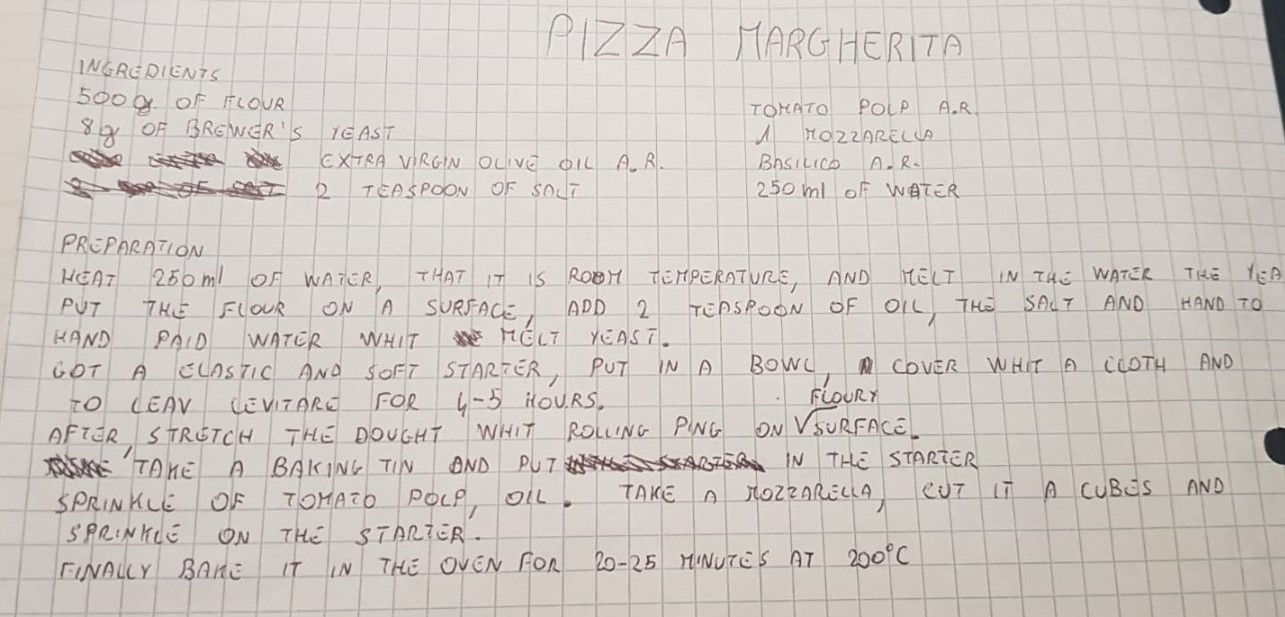 PIZZA MARGHERITA
INGREDIENTS
500 g. OF FLOUR
8 g OF BREWER'S YEAST
EXTRA VIRGIN OLIVE OIL A.R.
2 TEASPOON OF SALT
TOMATO POLP A.R.
1 MOZZARELLA
BASILICO A.R.
250 ml OF WATER
PREPARATION
HEAT 250 ml OF WATER, THAT IT IS ROOM TEMPERATURE, AND MELT IN THE WATER THE YEA
PUT THE FLOUR ON A SURFACE, ADD 2 TEASPOON OF OIL, THE SALT AND HAND TO
HAND PAID WATER WHIT MELT YEAST.
GOT A ELASTIC AND SOFT STARTER, PUT IN A BOWL, COVER WHIT A CLOTH AND
TO LEAV LEVITARE FOR 4-5 HOURS.
AFTER, STRETCH THE DOUGHT WHIT ROLLING PING ON FLOURY SURFACE.
TAKE A BAKING TIN AND PUT IN THE STARTER
SPRINKLE OF TOMATO POLP, OIL. TAKE A MOZZARELLA, CUT IT A CUBES AND
SPRINKLE ON THE STARTER.
FINALLY BAKE IT IN THE OVEN FOR 20-25 MINUTES AT 200°C